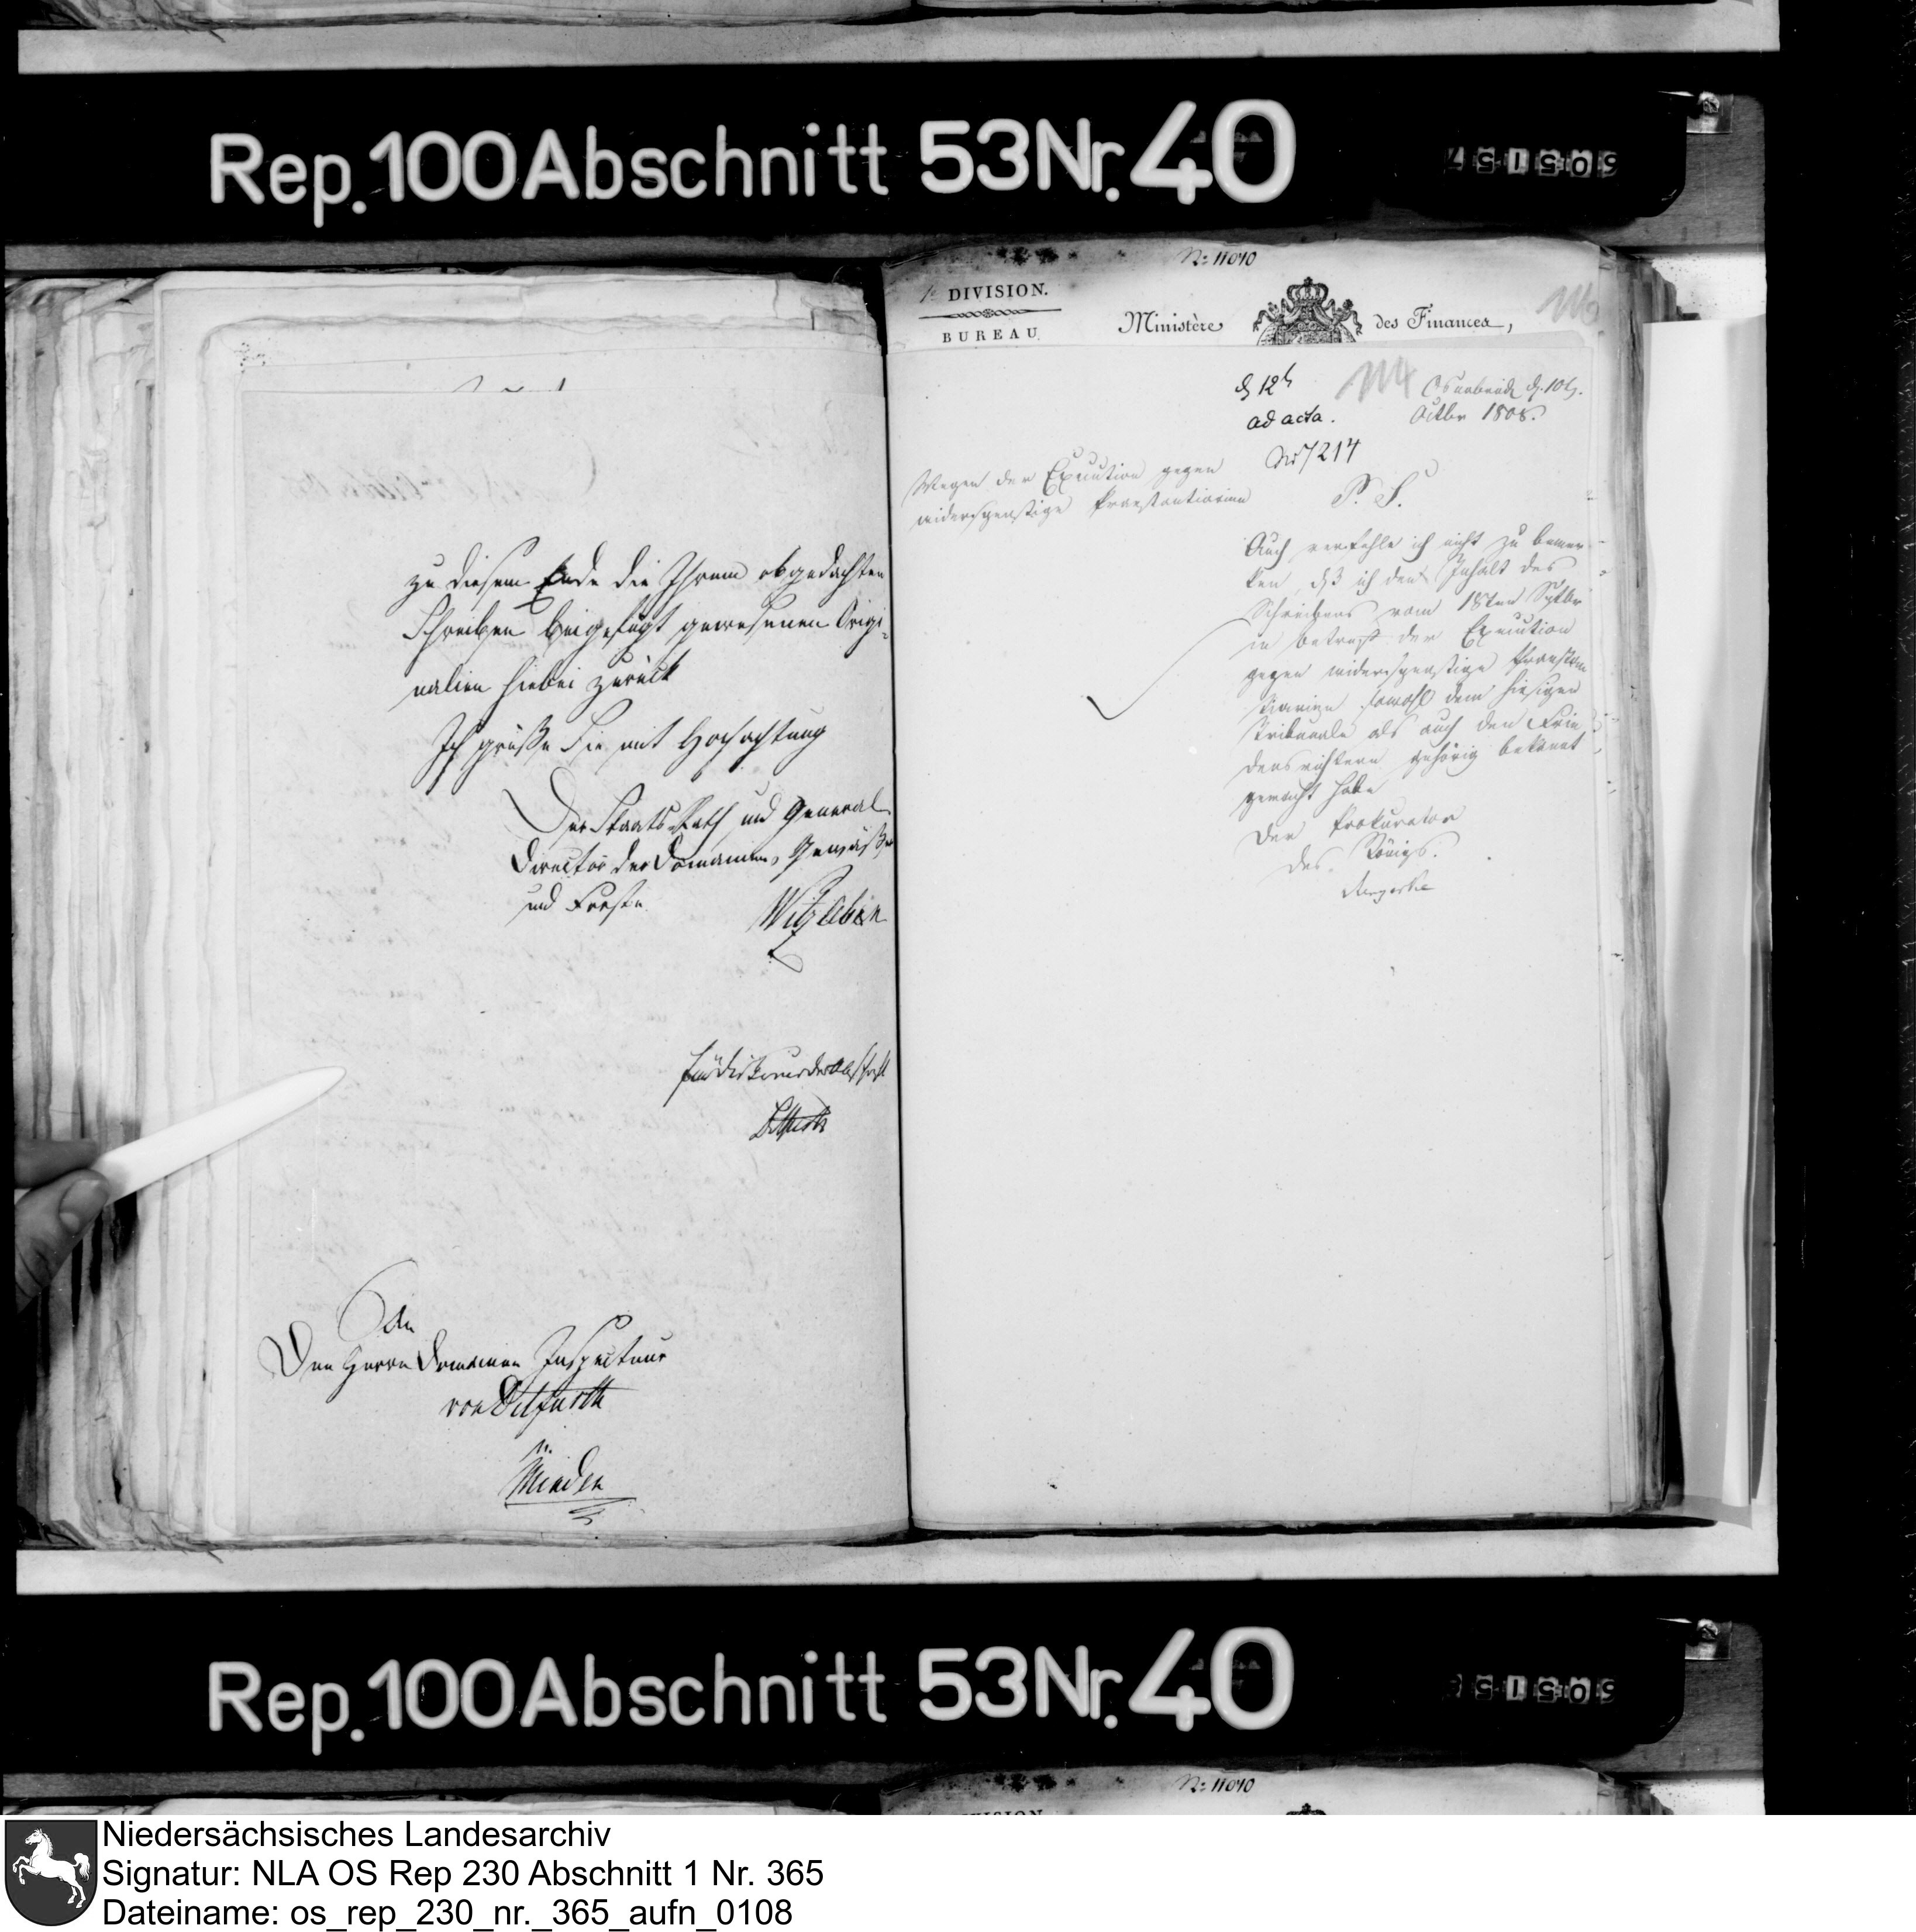 Rep. 100 Abschnitt 53 Nr. 40
zu diesem Ende die Ihrem obgedachten
Schreiben beigefügt gewesenen Origi-
nalien hiebei zurück
Ich grüße Sie mit Hochachtung
Der Staats-Rath und General
Director der Domainen, Gewäßer
und Forsten
Witzleben
An
Den Herrn Domainen Inspecteur
von Ditfurth
in
Minden
No 11010
1e DIVISION.
BUREAU
Ministère des Finances,
116
114
d 12t
ad acta.
No 7214
Osnabrück d. 10t.
Octbr 1808.
Wegen der Execution gegen
widerspenstige Praestantiarien
P. S.
Auch verfehle ich nicht zu bemer-
ken, dß ich den Inhalt des
Schreibens vom 18ten Septbr
in betreff der Execution
gegen widerspenstige Praestan
tiarien sowohl dem hiesigen
Tribunale als auch den Frie
densrichtern gehörig bekannt
gemacht habe
Der Prokurator
des Königs.
Rep. 100 Abschnitt 53 Nr. 40
No 11010
Niedersächsisches Landesarchiv
Signatur: NLA OS Rep 230 Abschnitt 1 Nr. 365
Dateiname: os_rep_230_nr._365_aufn_0108